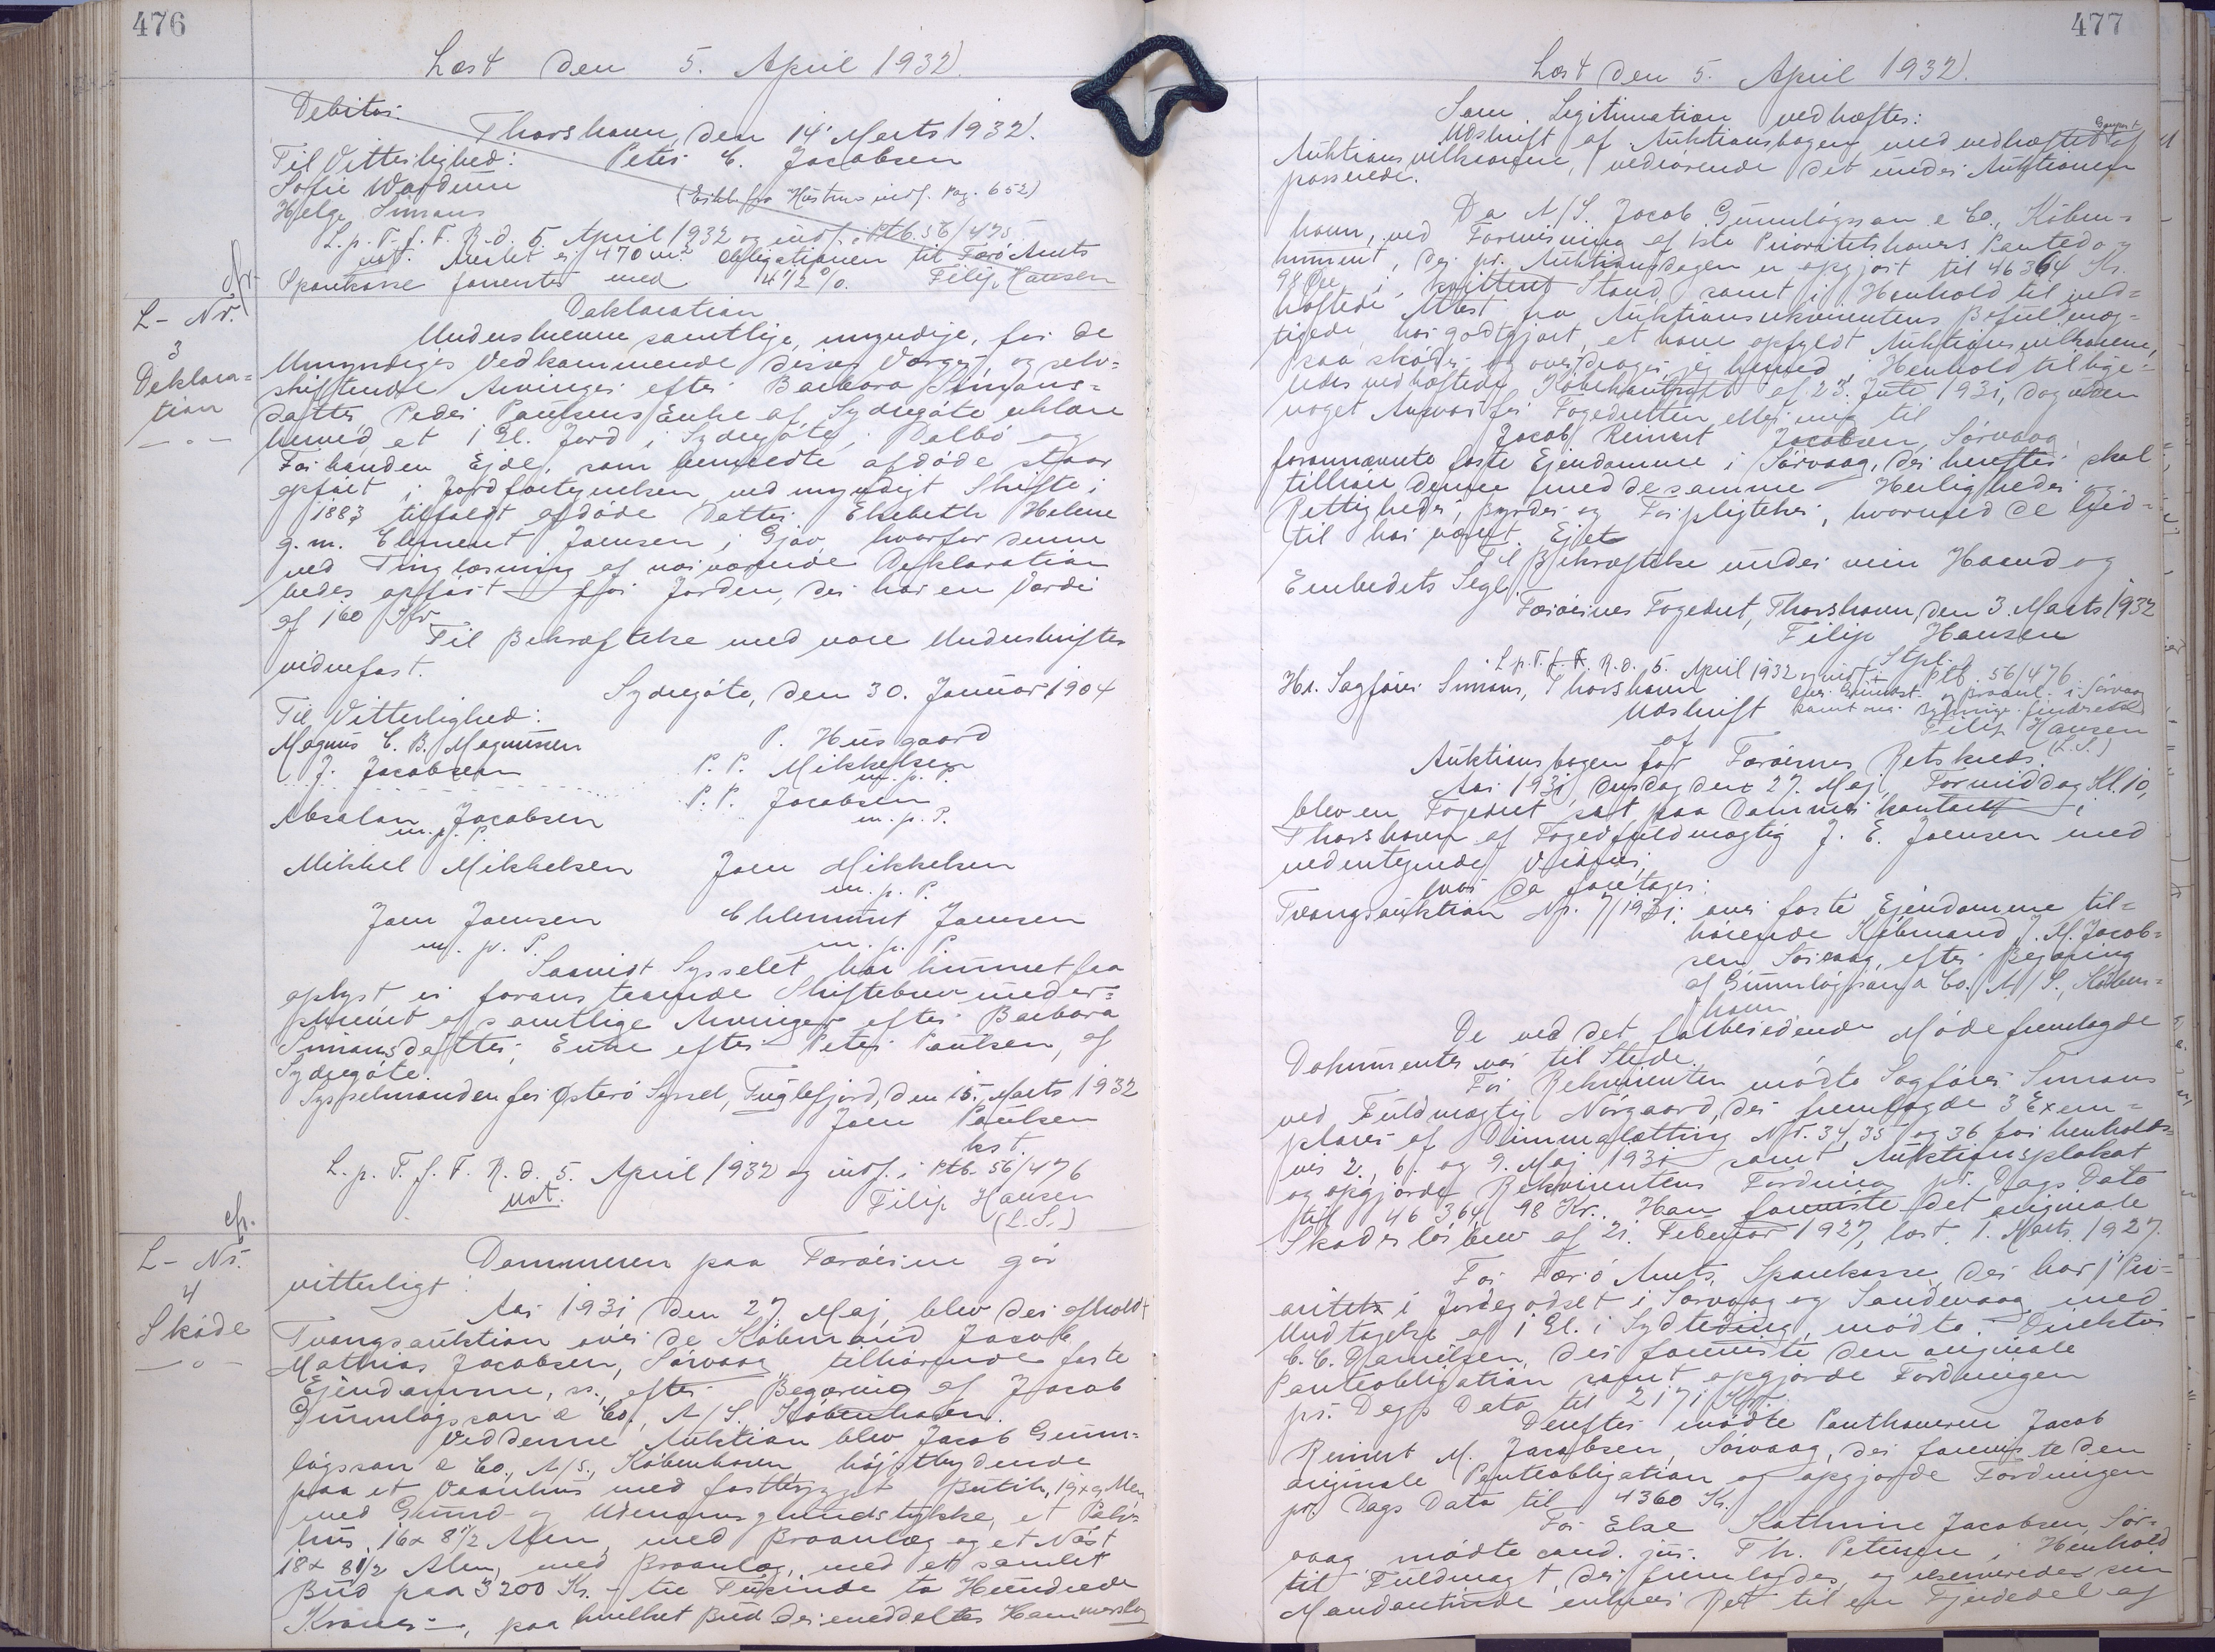 476
Læst den 5. April 1932.
Debitor:
Thorshavn, den 14' Marts 1932.
Til Vitterlighed: Peter C. Jacobsen
Sofie Wardum
Helge Simans (Erkl. fra Hustru indf. Pag. 652)
L. p. T. f. F. R. d. 5. April 1932 og indf. i Ptb. 56/475
not. Arealet er 470 m². Obligationen til Færø Amts
Sparekasse forrentes med 4 1/2 %. Filip Hansen
cfr.
L- Nr.
3
Deklara=
tion
Deklaration
Underskrevne samtlige, myndige, for de
Umyndiges Vedkommende disses Værger, og selv=
skiftende Arvinger efter Barbara Simons=
datter Peder Paulsens Enke af Sydregøte erklære
herved, at 1 Gl. Jord i Sydregøte, Dalbø og
Forhaanden Ejde, som bemeldte afdøde staar
opført i Jordfortegnelsen ved myndigt Skifte i
1883 tilfaldt afdøde Datter Elsebeth Helene
g. m. Clement Joensen i Gjov hvorfor denne
ved Tinglæsning af nærværende Deklaration
bedes opført for Jorden, der har en Værdi
af 160 Kr.
Til Bekræftelse med vore Underskrifter
vidnefast.
Sydregøte, den 30. Januar 1904
Til Vitterlighed:
Magnus C. B. Magnussen P. Husgaard
J. Jacobsen P. P. Mikkelsen
m. p. P.
P. P. Jacobsen
Absalon Jacobsen m. p. P.
m. p. P.
Mikkel Mikkelsen Joen Mikkelsen
m. p. P.
Joen Joensen Chlement Joensen
m. p. P. m. p. P.
Saavidt Sysselet har kunnet faa
oplyst er foranstaaende Skiftebrev under=
skrevet af samtlige Arvinger efter Barbara
Simonsdatter, Enke efter Peter Paulsen, af
Sydregøte.
Sysselmanden for Østerø Syssel, Fuglefjord, den 15. Marts 1932
Joen Paulsen
kst.
L. p. T. f. F. R. d. 5. April 1932 og indf. i Ptb. 56/476
not. Filip Hansen
(L. S.)
cfr.
L- Nr.
4
Skøde
Dommeren paa Færøerne gør
vitterligt:
Aar 1931 den 27. Maj, blev der afholdt
Tvangsauktion over de Købmand Jacob
Mathias Jacobsen, Sørvaag tilhørende faste
Ejendomme, efter Begæring af Jacob
Gunnløgsson & Co., A/S., København.
Ved denne Auktion blev Jacob Gunn=
løgsson & Co., A/S., København højstbydende
paa et Vaanhus med fastbygget Butik, 19x9 Alen
med Grund- og Udenomsgrundstykke, et Pakhus
hus, 16x 8 1/2 Alen, med Braanlæg og et Nøst
18x 8 1/2 Alen, med Braanlæg, med et samlet
Bud paa 3200 Kr. - tre Tusinde to Hundrede
Kroner -, paa hvilket Bud der meddeltes Hammerslag
477
Læst den 5. April 1932.
Som Legitimation vedhæftes:
Udskrift af Auktionsbogen med vedhæftet Genpart af
Auktionsvilkaarene, vedrørende det under Auktionen
passerede.
Da A/S. Jacob Gunnløgsson & Co., Køben=
havn, ved Forevisning af 1ste Prioritetshavers Pantedo=
kument, der pr. Auktionsdagen er opgjort til 46364 Kr.
98 Øre, i kvitteret Stand, samt i Henhold til ved=
hæftede Attest fra Auktionsrekvirentens Befuldmæg=
tigede, har godtgjort, at have opfyldt Auktionsvilkaarene,
saa skøder og overdrager jeg herved, i Henhold til lige=
ledes vedhæftede Købekontrakt af 23. Juli 1931, dog uden
noget Ansvar for Fogedretten eller mig til
Jacob Reinert Jacobsen, Sørvaag
forannævnte faste Ejendomme i Sørvaag, der herefter skal
tilhøre denne med de samme Herligheder og
Rettigheder, Byrder og Forpligtelser, hvormed de hid=
til har været Ejet.
Til Bekræftelse under min Haand og
Embedets Segl.
Færøernes Fogedret, Thorshavn, den 3. Marts 1932
Filip Hansen
Stpl.
L. p. T. f. F. R. d. 5. April 1932 og indf. i Ptb. 56/476
Hr. Sagfører Simans, Thorshavn
Udskrift
samt
Filip Hansen
(L.S.)
af
Auktionsbogen for Færøernes Retskreds.
Aar 1931, Onsdag den 27. Maj, Formiddag Kl. 10,
blev en Fogedret sat paa Dommerkontoret i
Thorshavn af Fogedfuldmægtig J. E. Joensen med
vedertegnede Vidner,
hvor da foretoges:
Tvangsauktion Nr. 7/1931: over faste Ejendomme til=
hørende Købmand J. M. Jacob=
sen Sørvaag, efter Begæring
af Gunnløgsson & Co. A/S., Køben=
havn
De ved det forberedende Møde fremlagde
Dokumenter var til Stede.
For Rekvirenten mødte Sagfører Simans
ved Fuldmægtig Nørgaard, der fremlagde 3 Exem=
plarer af Dimmalætting Nr. 34, 35 og 36 for henholds=
vis 2., 6. og 9. Maj 1931 samt Auktionsplakat
og opgjorde Rekvirentens Fordring pr. Dags Dato
til 46364 98 Kr.. Han foreviste det originale
Skadesløsbrev af 21. Februar 1927, læst 1. Marts 1927.
For Færø Amts Sparekasse, der har 1' Pri=
oritet i Jordegodset i Sørvaag og Sandevaag, med
Undtagelse af 1 Gl. i mødte Direktør
C. C. Danielsen, der foreviste den originale
Panteobligation samt opgjorde Fordringen
pr. Dags Dato til 2171 Kr.
Derefter mødte Panthaveren Jacob
Reinert M. Jacobsen, Sørvaag, der foreviste den
originale Panteobligation og opgjorde Fordringen
pr. Dags Dato til 4360 Kr.
For Else Kathrine Jacobsen, Sør=
vaag mødte cand. jur. Th. Petersen i Henhold
til Fuldmagt, der fremlagdes og reserverede sin
Mandantinde enhver Ret til en Fjerdedel af